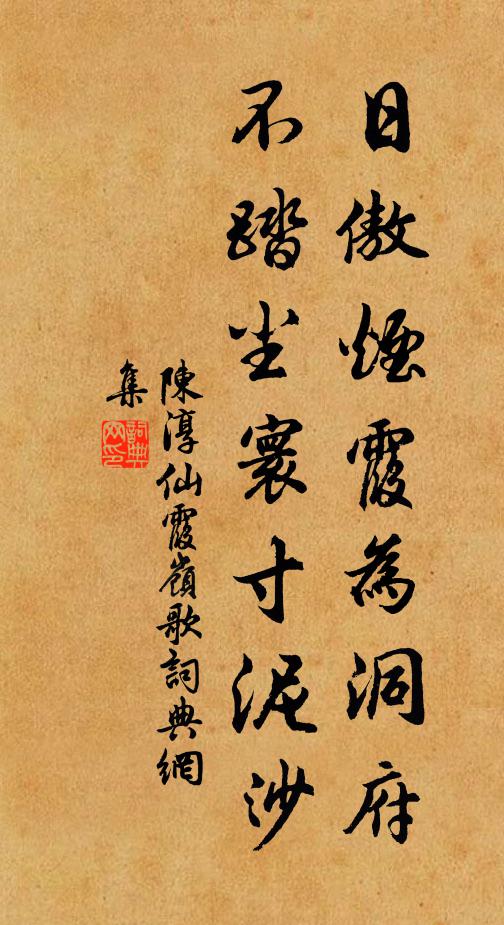 日傲煙霞為洞府
不踏尘寰寸泥沙
陳淳仙霞嶺歌詞典網
集
詞典
网印